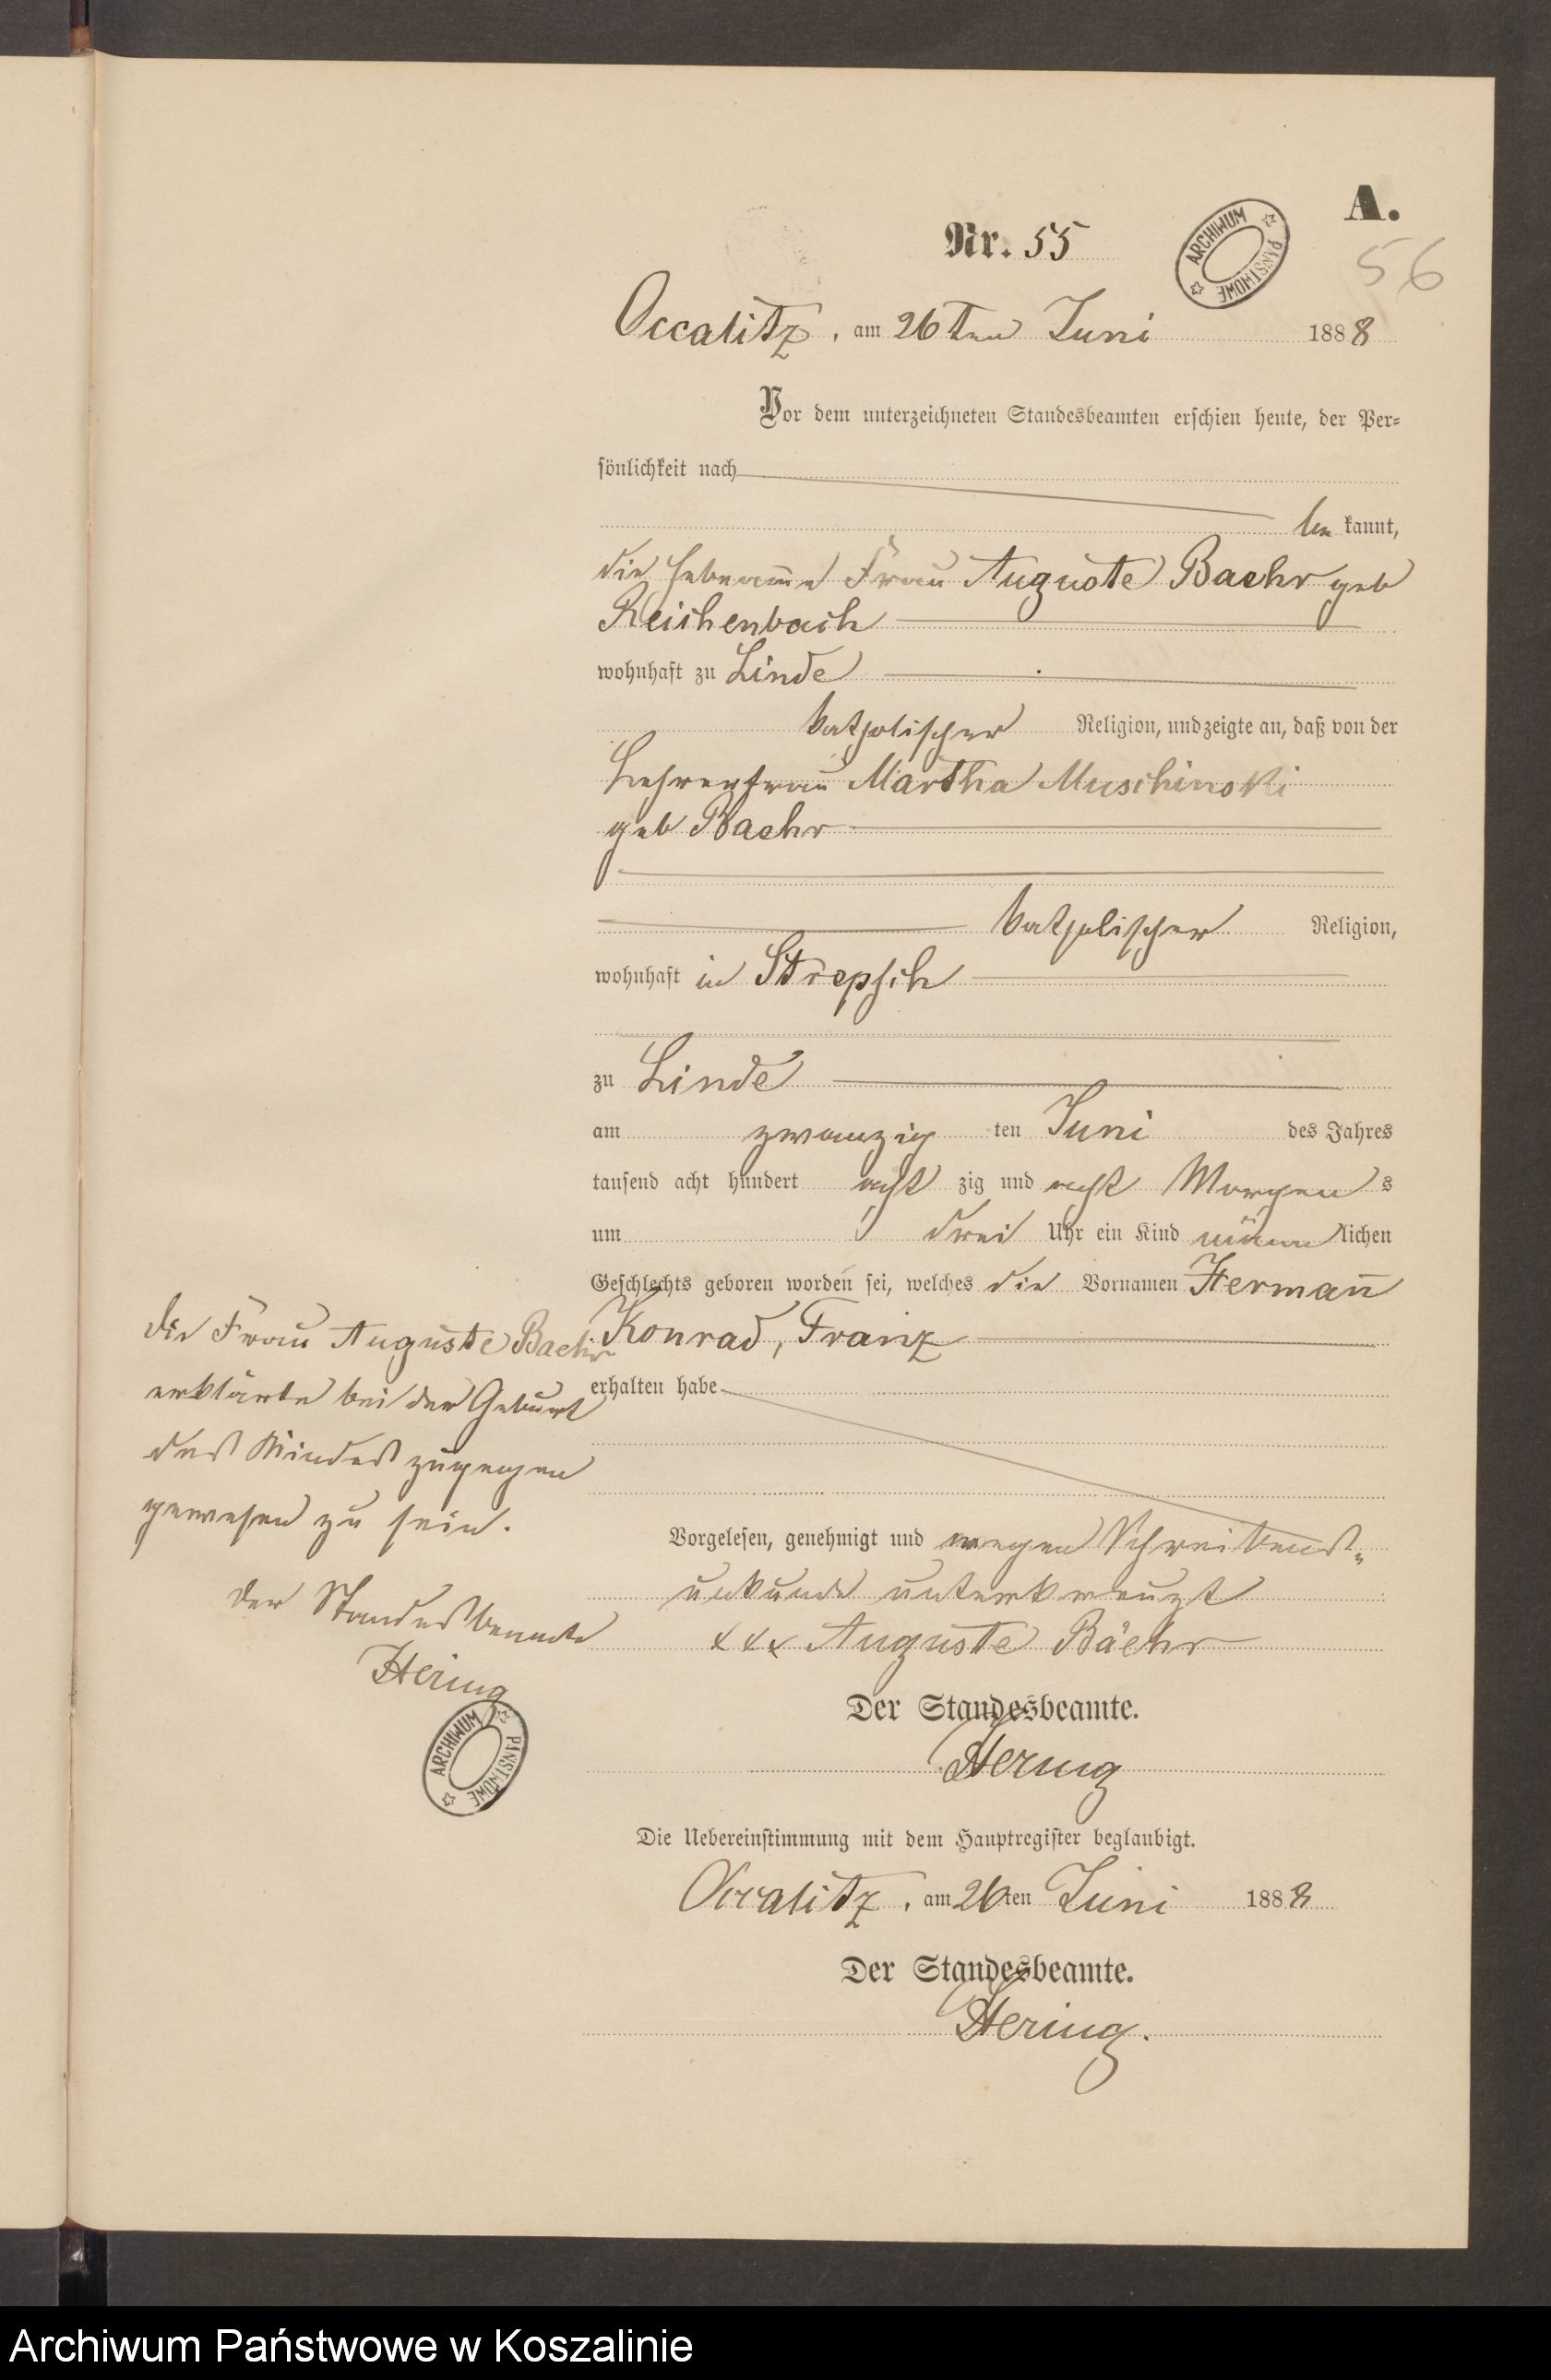 A.
Nr. 55
ARCHIWUM PAŃSTWOWE
56
Occalitz, am 26ten Juni 1888
Vor dem unterzeichneten Standesbeamten erschien heute, der Per-
sönlichkeit nach
be kannt,
die Hebeamme Frau Auguste Baehr geb
Reichenbach
wohnhaft zu Linde
katholischer Religion, und zeigte an, daß von der
Lehrerfrau Martha Muschinski
geb Baehr
katholischer Religion,
wohnhaft in Strepsch
zu Linde
am zwanzig ten Juni des Jahres
tausend acht hundert acht zig und acht Morgen s
um drei Uhr ein Kind männ lichen
Geschlechts geboren worden sei, welches die Vornamen Hermann
Konrad, Franz
erhalten habe
Die Frau Auguste Baehr
erklärte bei der Geburt
des Kindes zugegen
gewesen zu sein.
Der Standesbeamte
Hering
ARCHIWUM PAŃSTWOWE
Vorgelesen, genehmigt und wegen Schreibens-
unkunde unterkreuzt
xxx Auguste Bäehr
Der Standesbeamte.
Hering
Die Uebereinstimmung mit dem Hauptregister beglaubigt.
Occalitz, am 26ten Juni 1888
Der Standesbeamte.
Hering.
Archiwum Państwowe w Koszalinie